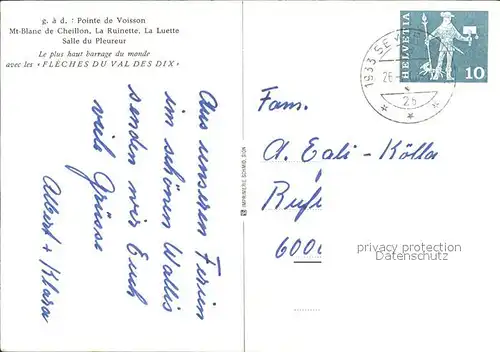 g. à d. : Pointe de Voisson
Mt-Blanc de Cheillon, La Ruinette, La Luette
Salle du Pleureur
Le plus haut barrage du monde
avec les «FLÈCHES DU VAL DES DIX»
Aus unseren Ferien
im schönen Wallis
senden wir Euch
viele Grüsse
Albert + Klara
IMPRIMERIE SCHMID, SION
HELVETIA
10
1933 SE
26
2b
Fam.
A. Eali-Kölla
Rufi
6000
privacy protection
Datenschutz